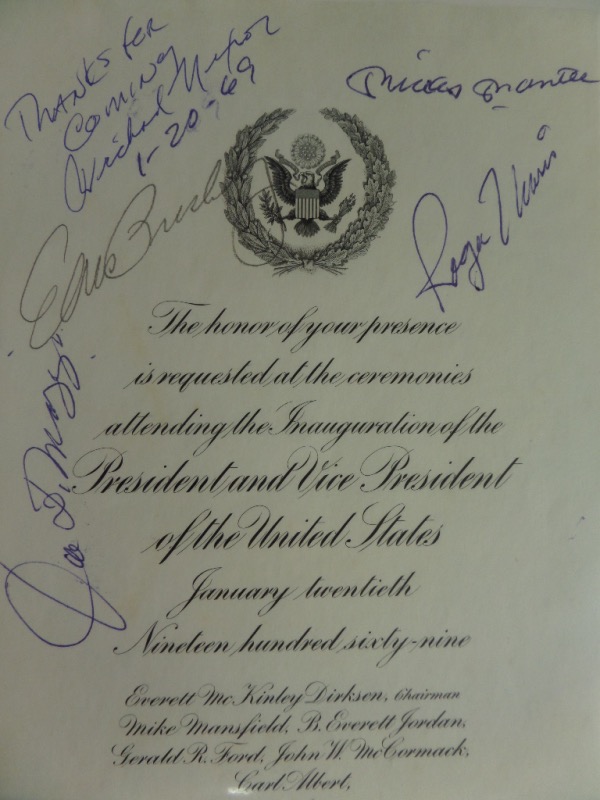 THANKS FOR
COMING
Richard Nixon
1-20-69
Mickey Mantle
Roger Maris
Joe DiMaggio
The honor of your presence
is requested at the ceremonies
attending the Inauguration of the
President and Vice President
of the United States
January twentieth
Nineteen hundred sixty-nine
Everett McKinley Dirksen, Chairman
Mike Mansfield, B. Everett Jordan,
Gerald R. Ford, John W. McCormack,
Carl Albert,